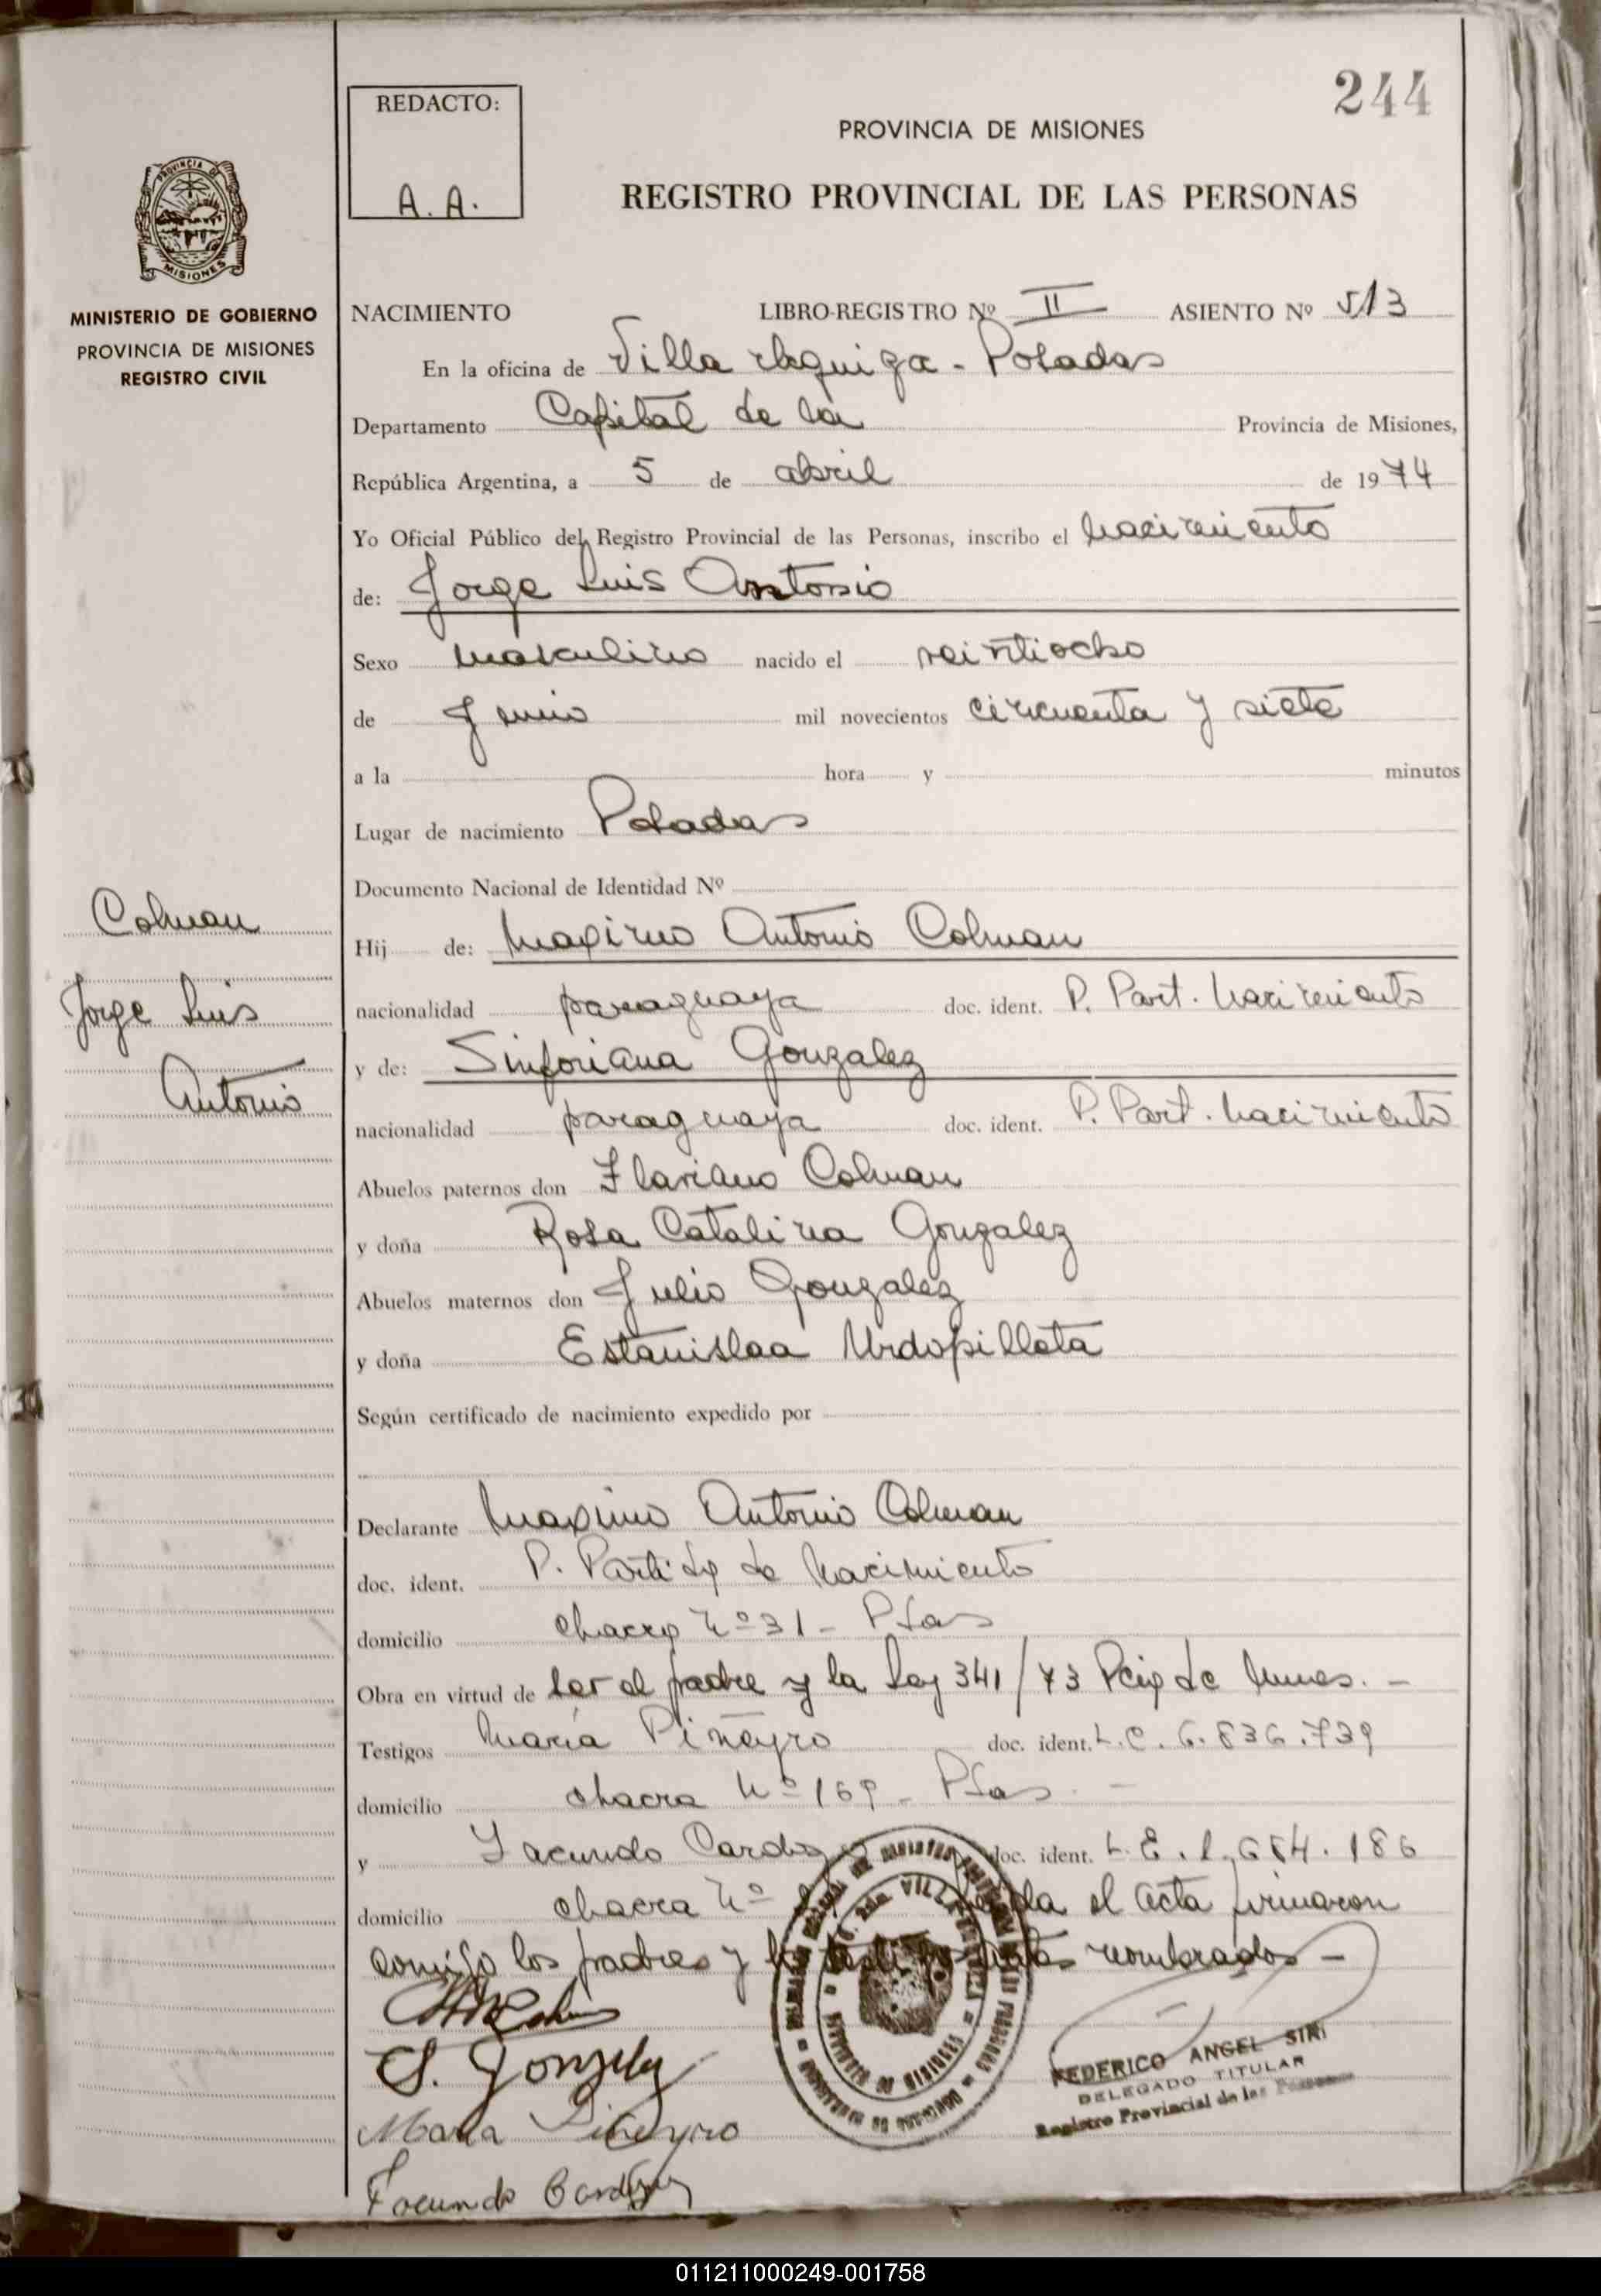 244
REDACTO:
A. A.
PROVINCIA DE MISIONES
REGISTRO PROVINCIAL DE LAS PERSONAS
PROVINCIA DE
MISIONES
MINISTERIO DE GOBIERNO
PROVINCIA DE MISIONES
REGISTRO CIVIL
NACIMIENTO LIBRO-REGISTRO Nº II ASIENTO Nº 513
En la oficina de Villa Urquiza - Posadas
Departamento Capital de la Provincia de Misiones,
República Argentina, a 5 de abril de 1974
Yo Oficial Público del Registro Provincial de las Personas, inscribo el nacimiento
de: Jorge Luis Antonio
Sexo masculino nacido el veintiocho
de Junio mil novecientos cincuenta y siete
a la hora y minutos
Lugar de nacimiento Posadas
Documento Nacional de Identidad Nº
Colman
Jorge Luis
Antonio
Hij de: Maximo Antonio Colman
nacionalidad paraguaya doc. ident. P. Part. Nacimiento
y de: Sinforiana Gonzalez
nacionalidad paraguaya doc. ident. P. Part. Nacimiento
Abuelos paternos don Flaviano Colman
y doña Rosa Catalina Gonzalez
Abuelos maternos don Julio Gonzalez
y doña Estanislaa Urdapilleta
Según certificado de nacimiento expedido por
Declarante Maximo Antonio Colman
doc. ident. P. Partida de Nacimiento
domicilio chacra Nº 31 - Psas
Obra en virtud de ser el padre y la Ley 341/73 . -
Testigos Maria Piñeyro doc. ident. L.C. 6.836.739
domicilio chacra Nº 169 - Psas. -
y Facundo doc. ident. L.E. 186
domicilio chacra Nº el acta firmaron
comigo los padres y los testigos nombrados -
S. Gonzalez
Maria Piñeyro
Facundo
FEDERICO ANGEL SIRI
DELEGADO TITULAR
Registro Provincial de las Personas
011211000249-001758